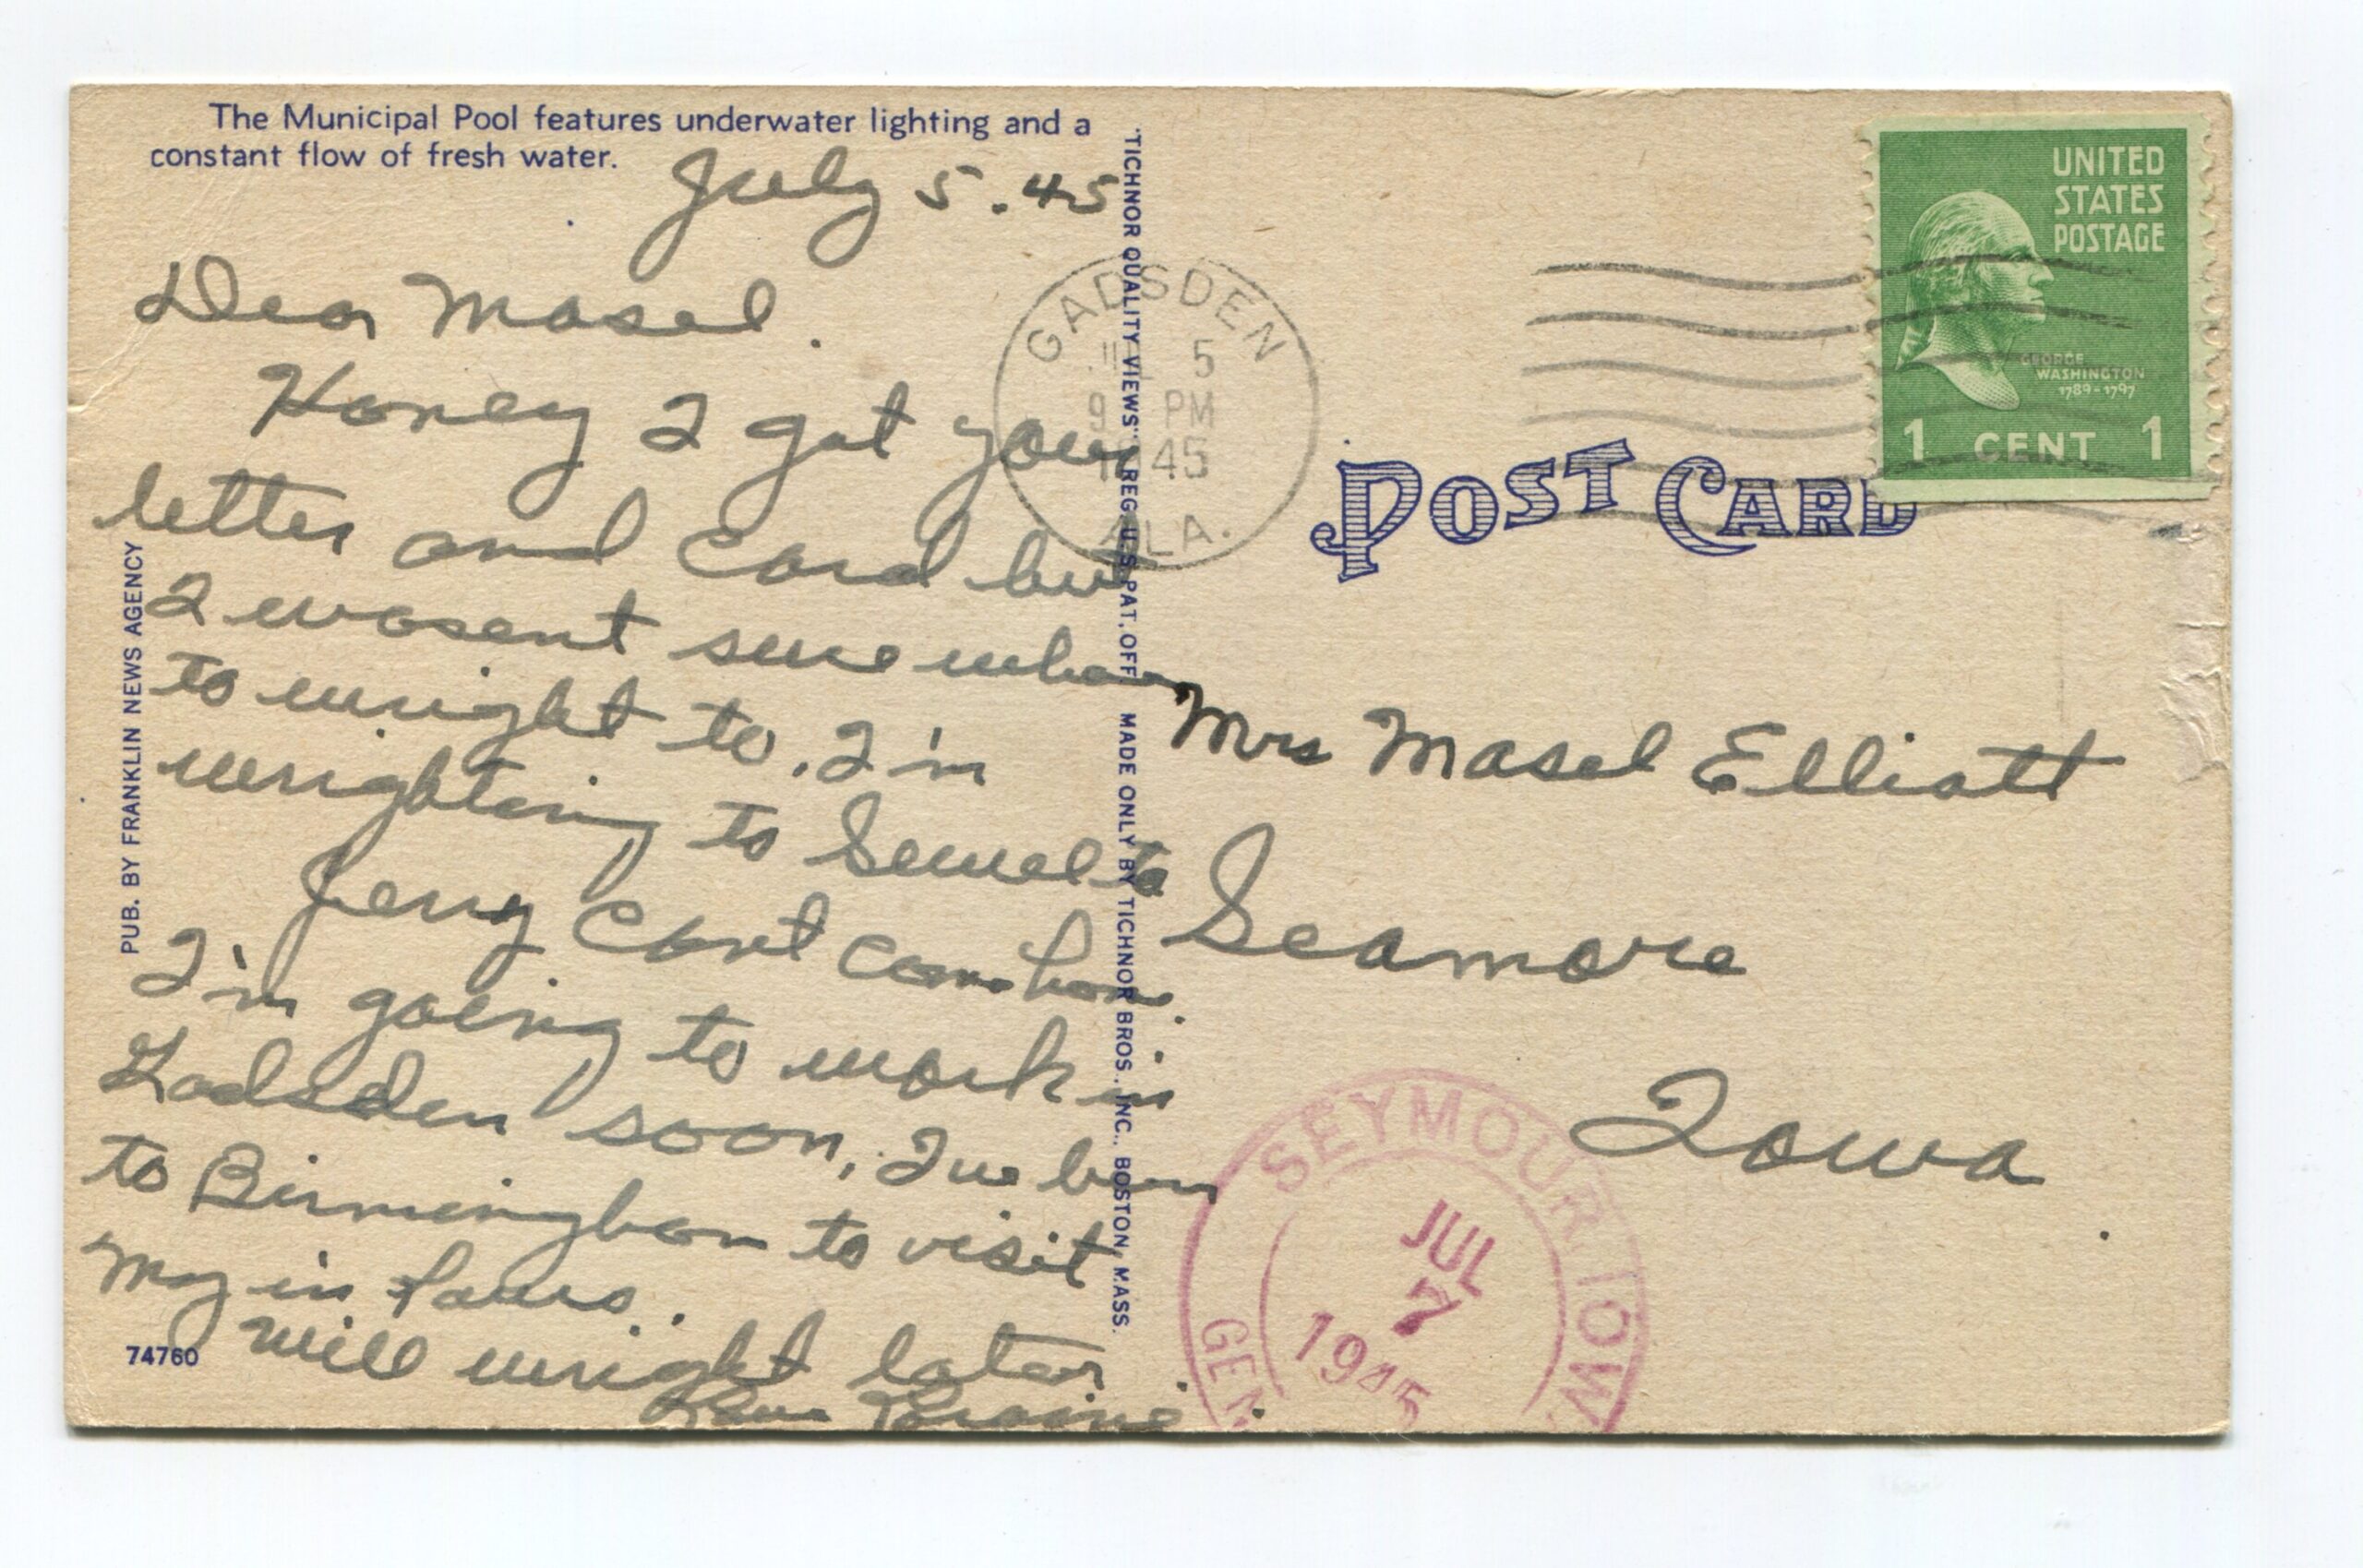 The Municipal Pool features underwater lighting and a
constant flow of fresh water.
July 5. 45
Dear Masel.
Honey I got your
letter and Card but
I wasent sure whear
to wright to. I'm
wrighting to Semel to
Jerry Cant Come home.
I'm going to work in
Gadsden soon, I've been
to Birmingham to visit
My in laws.
Will wright later
Love Loraine
PUB. BY FRANKLIN NEWS AGENCY
74760
"TICHNOR QUALITY VIEWS" REG. U.S. PAT. OFF. MADE ONLY BY TICHNOR BROS., INC., BOSTON, MASS.
GADSDEN
5
9 PM
1945
ALA.
UNITED
STATES
POSTAGE
GEORGE
WASHINGTON
1789-1797
1 CENT 1
POST CARD
Mrs Masel Elliott
Seamore
Iowa
SEYMOUR IOW
JUL
7
1945
GEN